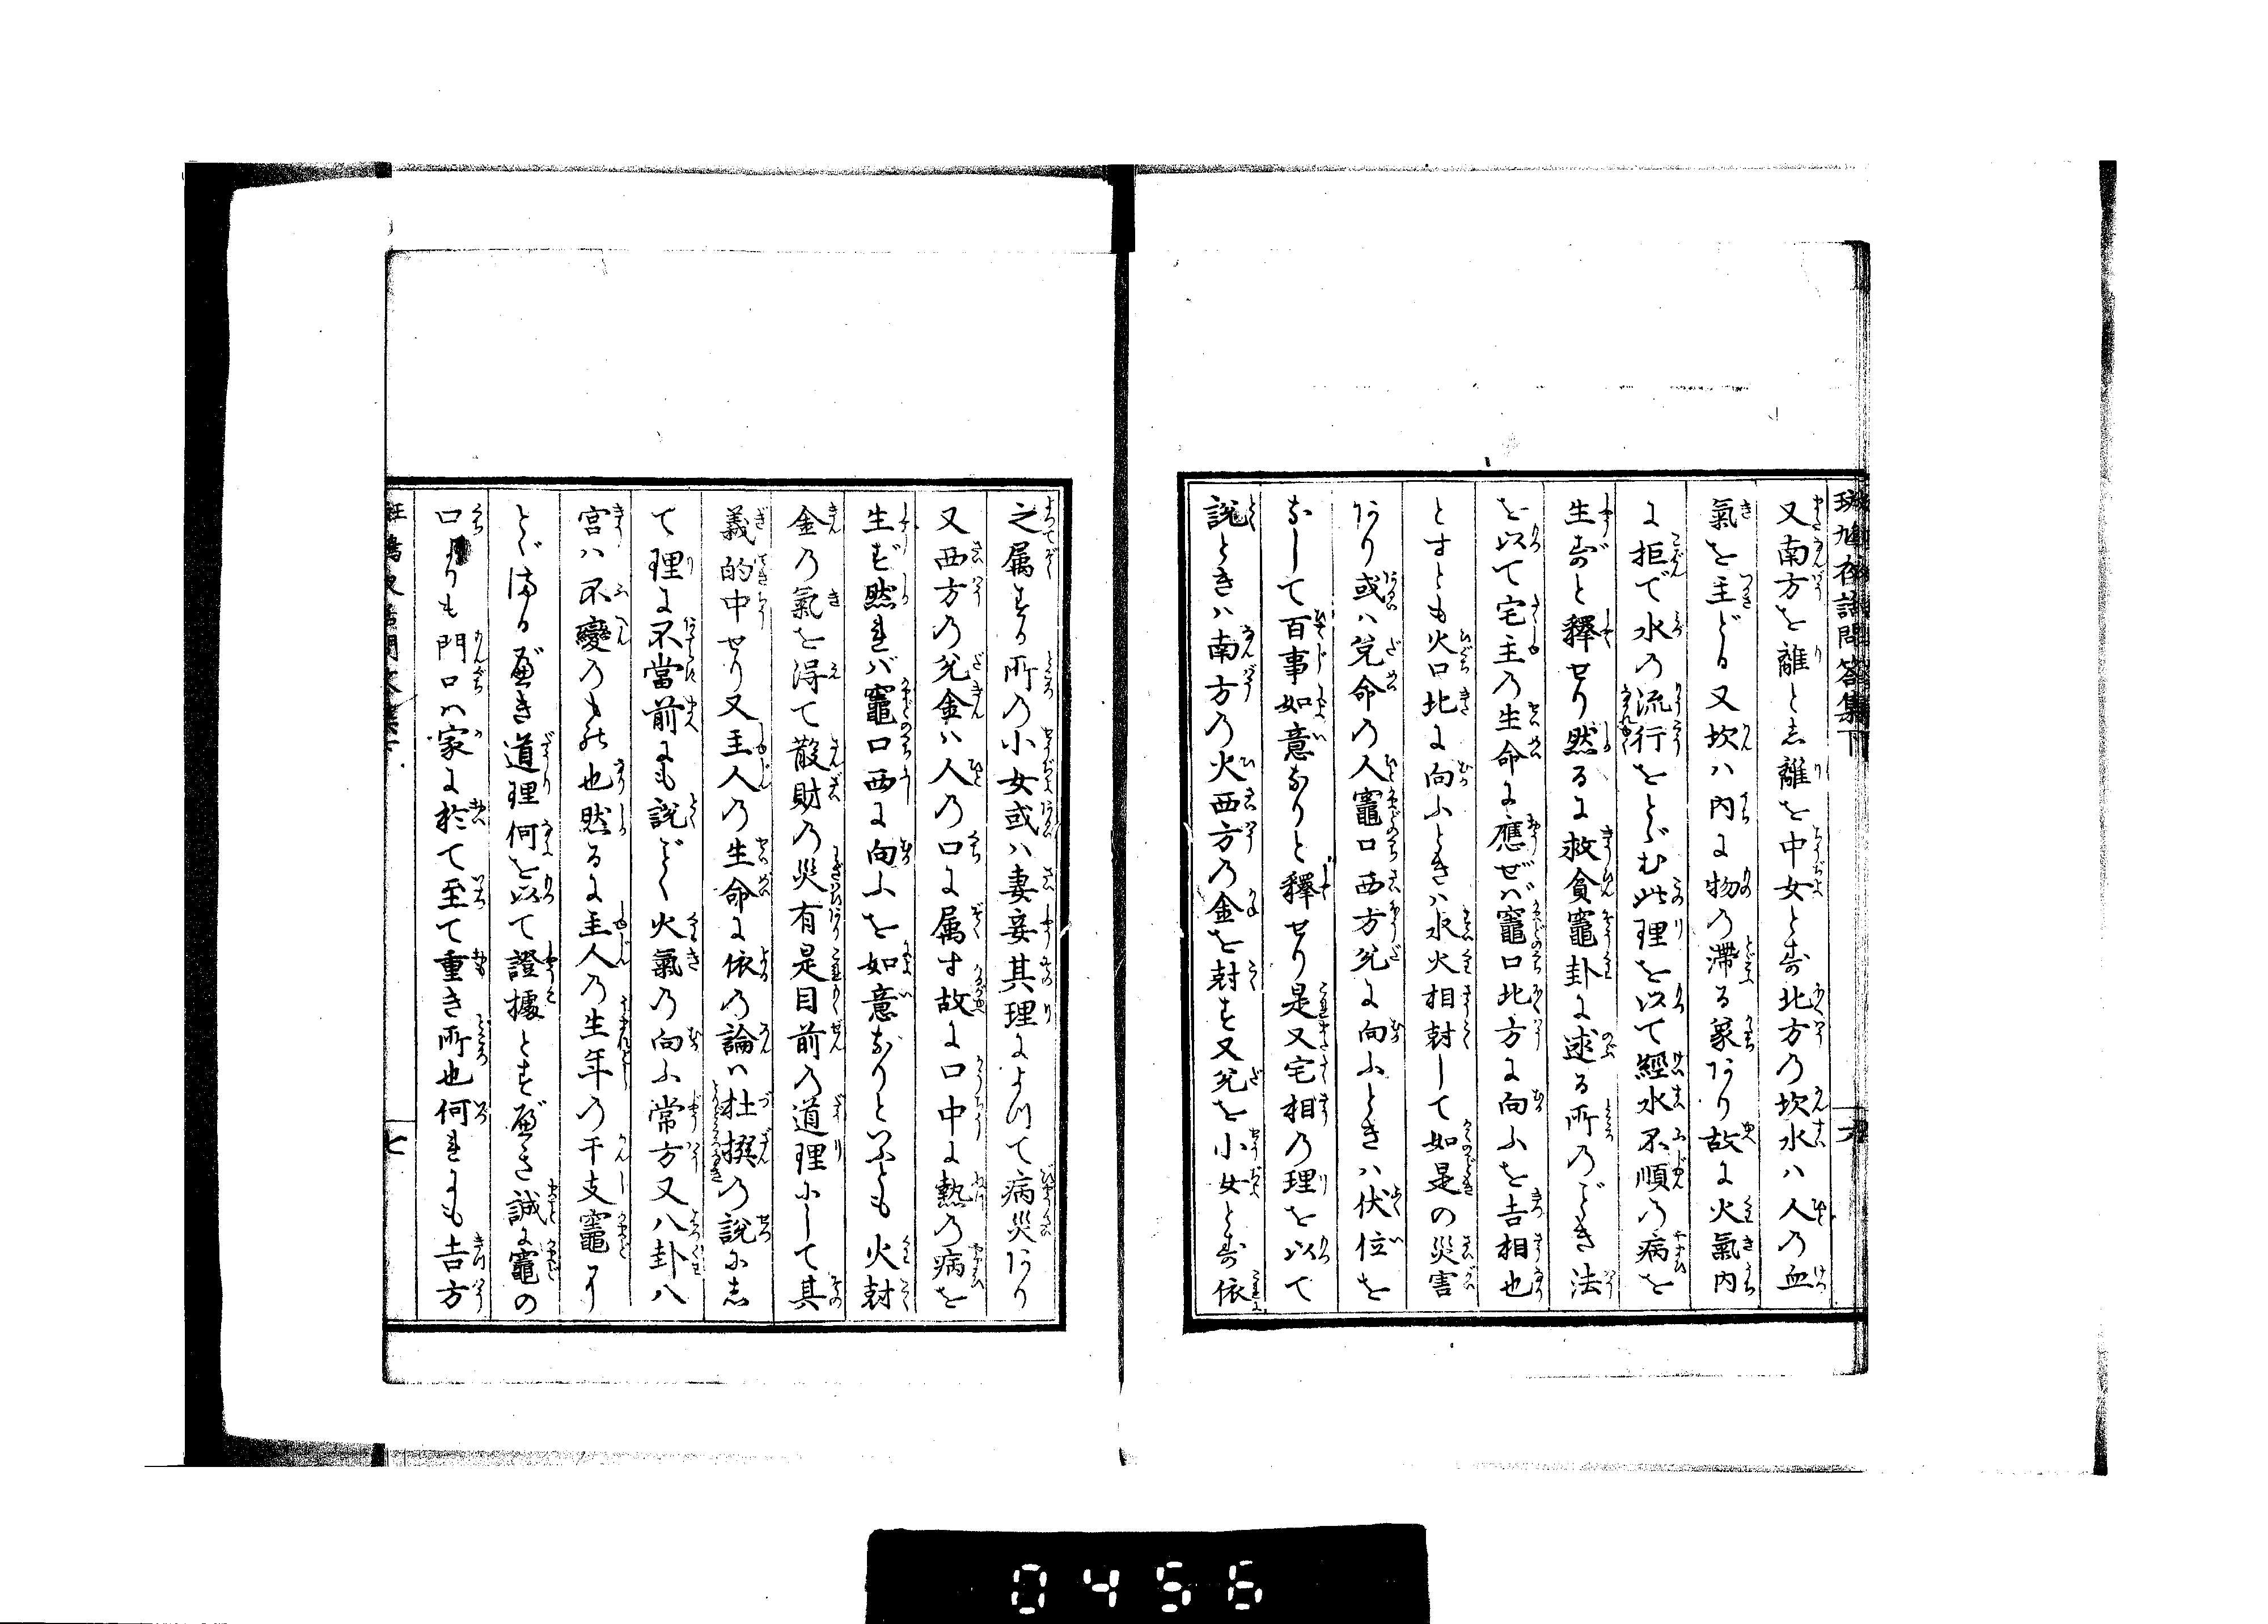 斑鳩夜話問答集下
又南方を離とし離を中女とす北方の坎水ハ人の血
氣を主どる又坎ハ内に物の滞る象あり故に火氣内
に拒で水の流行をとゞむ此理を以て經水不順の病を
生ずと釋せり然るに救貧竈卦に逑る所のごとき法
を以て宅主の生命に應ぜバ竈口北方に向ふを吉相也
とすとも火口北に向ふときハ水火相尅して如是の災害
あり或ハ兌命の人竈口西方兌に向ふときハ伏位を
なして百事如意なりと釋せり是又宅相の理を以て
説ときハ南方の火西方の金を尅す又兌を小女とす依
之属する所の小女或ハ妻妾其理によつて病災あり
又西方の兌金ハ人の口に属す故に口中に熱の病を
生ず然れバ竈口西に向ふを如意なりといふとも火尅
金の氣を得て散財の災有是目前の道理にして其
義的中せり又主人の生命に依の論ハ杜撰の説にし
て理に不當前にも説ごとく火氣の向ふ常方又八卦八
宮ハ不變のもの也然るに主人の生年の干支竈に
とゞまるべき道理何を以て證據とすべき誠に竈の
口よりも門口ハ家に於て至て重き所也何れにも吉方
七